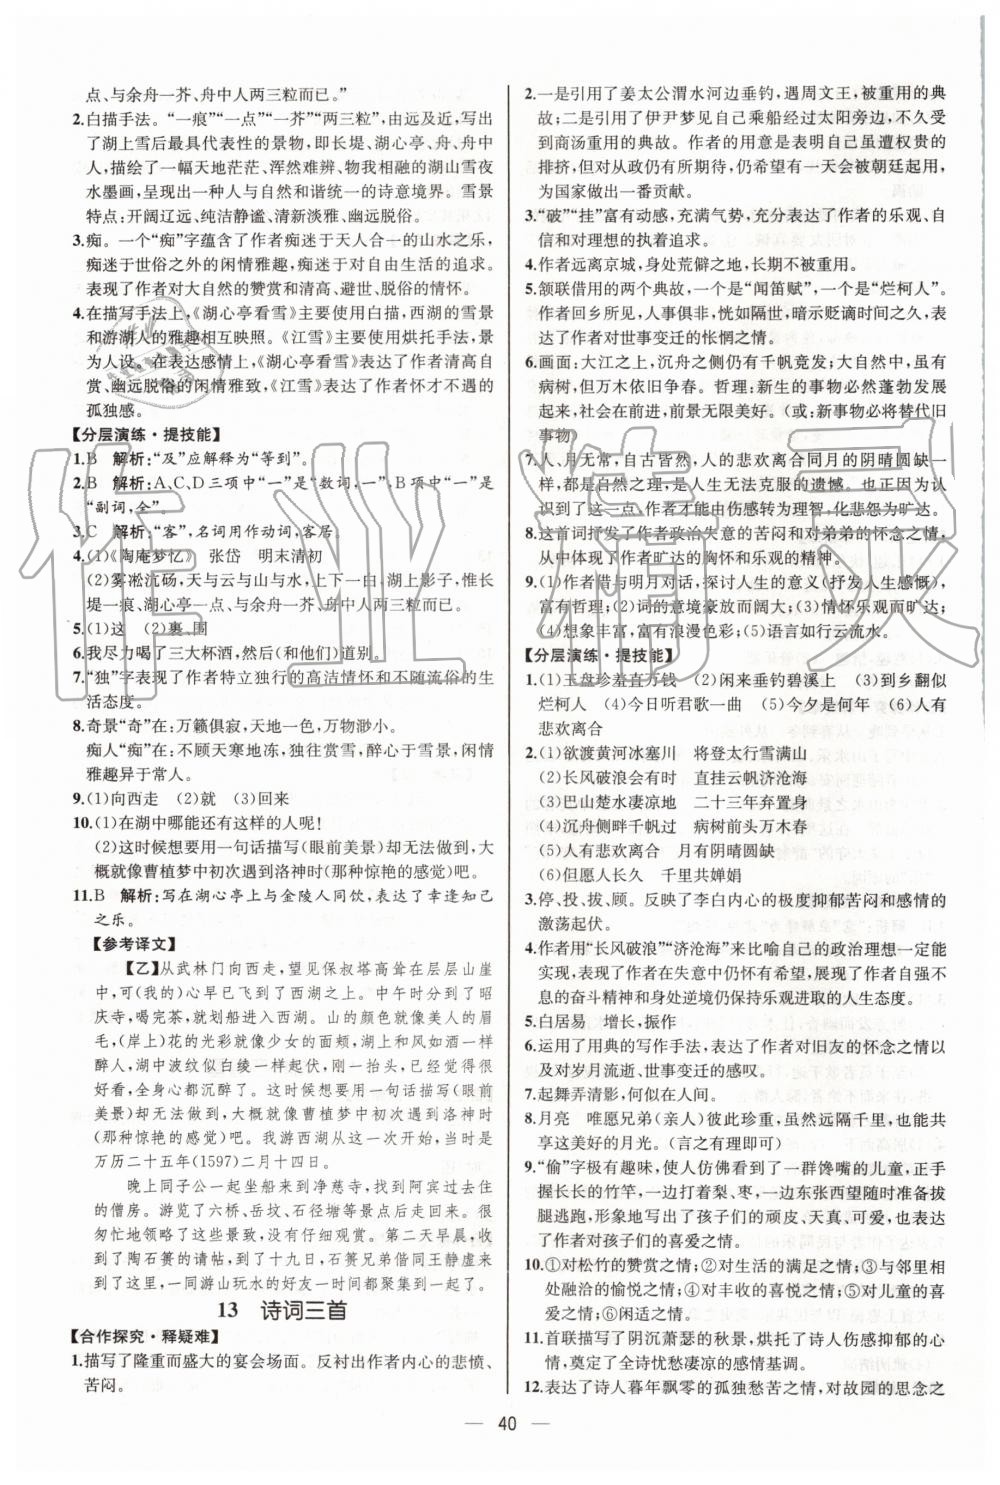 点、与余舟一芥、舟中人两三粒而已。”
2.白描手法。“一痕”“一点”“一芥”“两三粒”,由远及近,写出
了湖上雪后最具代表性的景物,即长堤、湖心亭、舟、舟中
人,描绘了一幅天地茫茫、浑然难辨、物我相融的湖山雪夜
水墨画,呈现出一种人与自然和谐统一的诗意境界。雪景
特点:开阔辽远、纯洁静谧、清新淡雅、幽远脱俗。
3.痴。一个“痴”字蕴含了作者痴迷于天人合一的山水之乐,
痴迷于世俗之外的闲情雅趣,痴迷于自由生活的追求。
表现了作者对大自然的赞赏和清高、避世、脱俗的情怀。
4.在描写手法上,《湖心亭看雪》主要使用白描,西湖的雪景
和游湖人的雅趣相互映照。《江雪》使用烘托手法,先景后人,
景为人设。在表达感情上,《湖心亭看雪》表达了作者清高自
赏、幽远脱俗的闲情雅致,《江雪》表达了作者怀才不遇的
孤独感。
【分层演练·提技能】
1.B 解析:“及”应解释为“等到”。
2.B 解析:A、C、D三项中“一”是“数词,一”,B项中“一”是
“副词,全”。
3.C 解析:“客”,名词用作动词,客居。
4.(1)《陶庵梦忆》 张岱 明末清初
(2)雾凇沆砀,天与云与山与水,上下一白。湖上影子,惟长
堤一痕、湖心亭一点、与余舟一芥、舟中人两三粒而已。
5.(1)这 (2)裹、围
6.我尽力喝了三大杯酒,然后(和他们)道别。
7.“独”字表现了作者特立独行的高洁情怀和不随流俗的生
活态度。
8.奇景“奇”在:万籁俱寂,天地一色,万物渺小。
痴人“痴”在:不顾天寒地冻,独往赏雪,醉心于雪景,闲情
雅趣异于常人。
9.(1)向西走 (2)就 (3)回来
10.(1)在湖中哪能还有这样的人呢!
(2)这时候想要用一句话描写(眼前美景)却无法做到,大
概就像曹植梦中初次遇到洛神时(那种惊艳的感觉)吧。
11.B 解析:写在湖心亭上与金陵人同饮,表达了幸逢知己
之乐。
【参考译文】
【乙】从武林门向西走,望见保叔塔高耸在层层山崖
中,可(我的)心早已飞到了西湖之上。中午时分到了昭
庆寺,喝完茶,就划船进入西湖。山的颜色就像美人的眉
毛,(岸上)花的光彩就像少女的面颊,湖上的和风就像酒一样
醉人,湖中波纹似白绫一样起伏,刚一抬头,已经觉得目不暇
好看,全身心都沉醉了。这时候想要用一句话描写(眼前
美景)却无法做到,大概就像曹植梦中初次遇到洛神时
(那种惊艳的感觉)吧。我游西湖从此开始,当时是
万历二十五年(1597)二月十四日。
晚上同子公一起坐船来到净慈寺,找到阿宾过去住
的僧房。游览了六桥、岳坟、石径塘等景点后走回来。很
匆忙地领略了这些景致,没有仔细观赏。第二天早晨,收
到了陶石篑的请帖,到了十九日,石篑兄弟偕同王静虚来
到了这里,一同游山玩水的好友一时间都聚集到一起了。
13 诗词三首
【合作探究·释疑难】
1.描写了隆重而盛大的宴会场面。反衬出作者内心的悲愤、
苦闷。
2.一是引用了姜太公渭水河边垂钓,遇周文王,被重用的典
故;二是引用了伊尹梦见自己乘船经过太阳旁边,不久受
到商汤重用的典故。作者的用意是表明自己虽遭权贵的
排挤,但对从政仍有所期待,仍希望有一天会被朝廷起用,
为国家做出一番贡献。
3.“破”“挂”富有动感,充满气势,充分表达了作者的乐观、自
信和对理想的执着追求。
4.作者远离京城,身处荒僻之地,长期不被重用。
5.颔联借用的两个典故,一个是“闻笛赋”,一个是“烂柯人”。
作者回乡所见,人事俱非,恍如隔世,暗示贬谪时间之久,表
达了作者对世事变迁的怅惘之情。
6.画面:大江之上,沉舟之侧仍有千帆竞发;大自然中,虽有
病树,但万木依旧争春。哲理:新生的事物必然蓬勃发展
起来,社会在前进,前景无限美好。(或:新事物必将替代旧
事物)
7.人、月无常,自古皆然,人的悲欢离合同月的阴晴圆缺一
样,都是自然之理,是人生无法克服的遗憾。也正因为认
识到了这一点,作者才能由伤感转为理智,化悲怨为旷达。
8.这首词抒发了作者政治失意的苦闷和对弟弟的怀念之情,
从中体现了作者旷达的胸怀和乐观的精神。
9.(1)作者借与明月对话,探讨人生的意义(抒发人生感慨),
富有哲理;(2)词的意境豪放而阔大;(3)情怀乐观而旷达;
(4)想象丰富,富有浪漫色彩;(5)语言如行云流水。
【分层演练·提技能】
1.(1)玉盘珍羞直万钱 (2)闲来垂钓碧溪上 (3)到乡翻似
烂柯人 (4)今日听君歌一曲 (5)今夕是何年 (6)人有
悲欢离合
2.(1)欲渡黄河冰塞川 将登太行雪满山
(2)长风破浪会有时 直挂云帆济沧海
(3)巴山楚水凄凉地 二十三年弃置身
(4)沉舟侧畔千帆过 病树前头万木春
(5)人有悲欢离合 月有阴晴圆缺
(6)但愿人长久 千里共婵娟
3.停、投、拔、顾。反映了李白内心的极度抑郁苦闷和感情的
激荡起伏。
4.作者用“长风破浪”“济沧海”来比喻自己的政治理想一定能
实现,表现了作者在失意中仍怀有希望,展现了作者自强不
息的奋斗精神和身处逆境仍保持乐观进取的人生态度。
5.白居易 增长,振作
6.运用了用典的写作手法,表达了作者对旧友的怀念之情以
及对岁月流逝、世事变迁的感叹。
7.起舞弄清影,何似在人间。
8.月亮 唯愿兄弟(亲人)彼此珍重,虽然远隔千里,也能共
享这美好的月光。(言之有理即可)
9.“偷”字极有趣味,使人仿佛看到了一群馋嘴的儿童,正手
握长长的竹竿,一边打着梨、枣,一边东张西望随时准备拔
腿逃跑,形象地写出了孩子们的顽皮、天真、可爱,也表达了
作者对孩子们的喜爱之情。
10.①对松竹的赞赏之情;②对生活的满足之情;③与邻里
相处融洽的愉悦之情;④对丰收的喜悦之情;⑤对儿童的喜
爱之情;⑥闲适之情。
11.首联描写了阴沉萧瑟的秋景,烘托了诗人伤感抑郁的心
情,奠定了全诗忧愁凄凉的感情基调。
12.表达了诗人暮年飘零的孤独愁苦之情,对故园的思念之
— 40 —
作业精灵